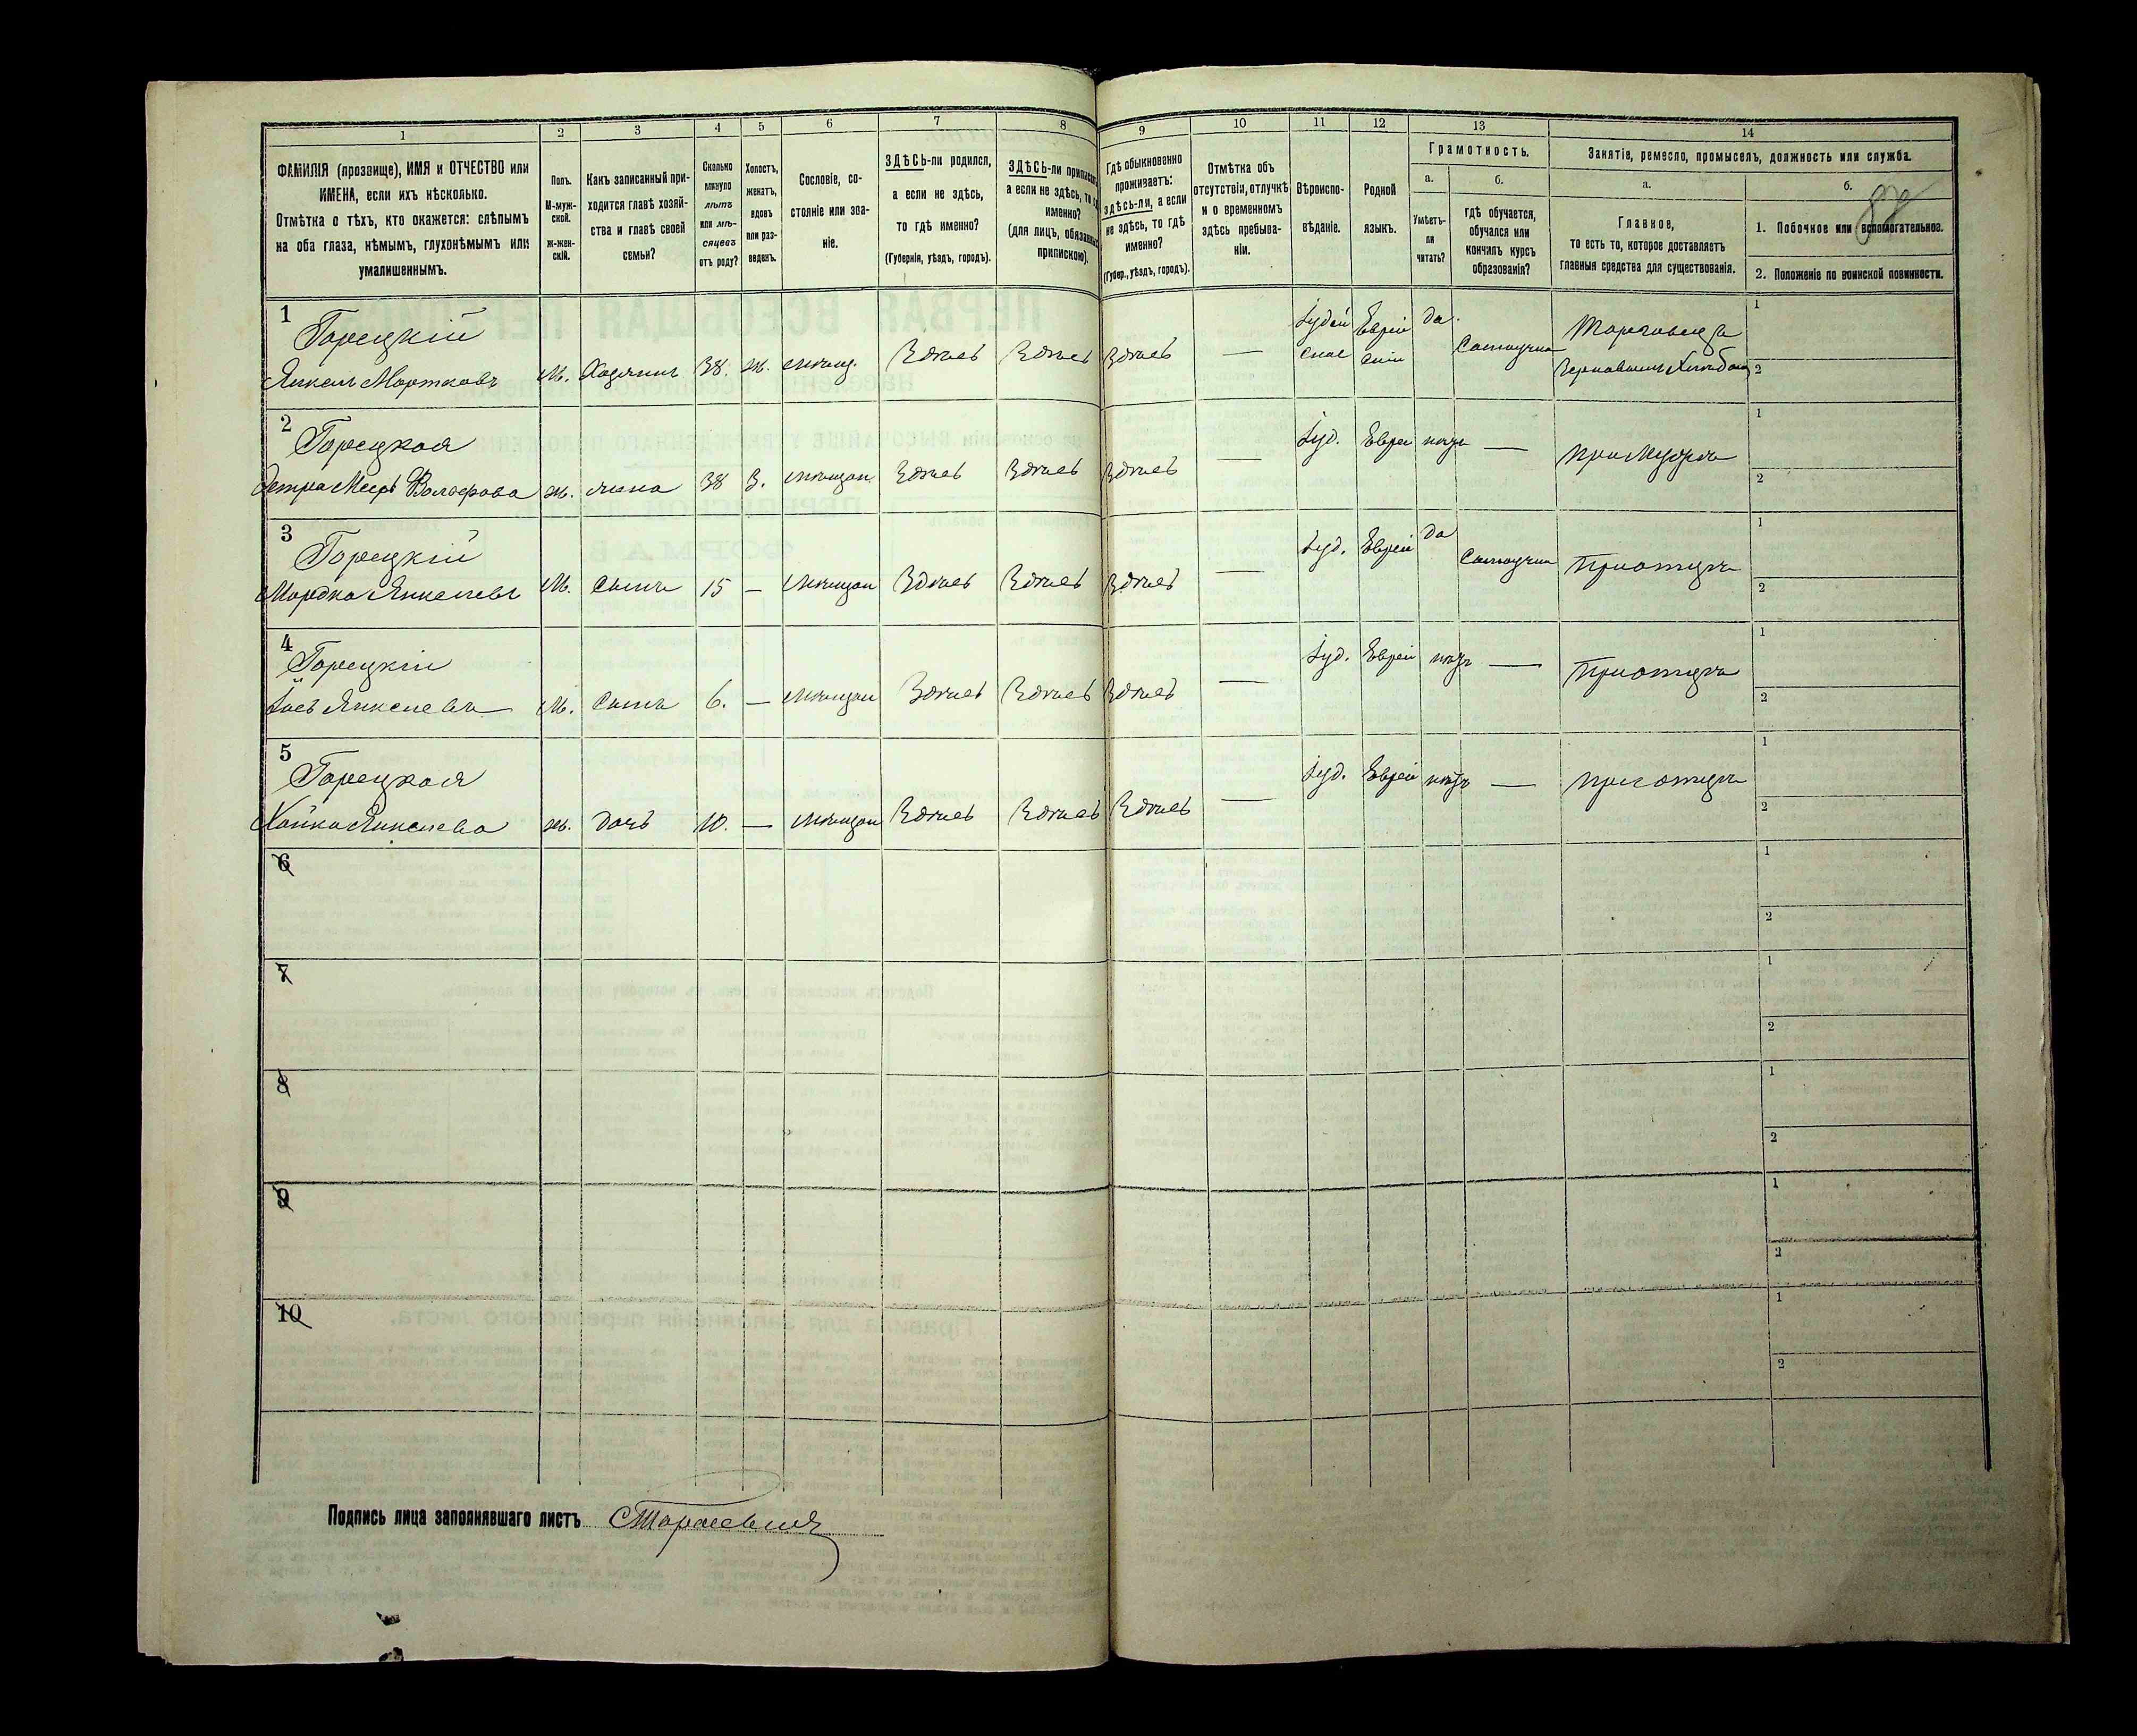 1 2 3 4 5 6 7 8 9 10 11 12 13 14
ФАМИЛІЯ (прозвище), ИМЯ и ОТЧЕСТВО или
ИМЕНА, если ихъ нѣсколько.
Отмѣтка о тѣхъ, кто окажется: слѣпымъ
на оба глаза, нѣмымъ, глухонѣмымъ или
умалишеннымъ.
Полъ.
М-муж-
ской.
ж-жен-
скій.
Какъ записанный при-
ходится главѣ хозяй-
ства и главѣ своей
семьи?
Сколько
минуло
лѣтъ
или мѣ-
сяцевъ
отъ роду?
Холостъ,
женатъ,
вдовъ
или раз-
веденъ.
Сословіе, со-
стояніе или зва-
ніе.
ЗДѢСЬ-ли родился,
а если не здѣсь,
то гдѣ именно?
(Губернія, уѣздъ, городъ).
ЗДѢСЬ-ли
а если не здѣсь, то
именно?
(для лицъ,
припискою).
Гдѣ обыкновенно
проживаетъ:
здѣсь-ли, а если
не здѣсь, то гдѣ
именно?
(Губер., уѣздъ, городъ).
Отмѣтка объ
отсутствіи, отлучкѣ
и о временномъ
здѣсь пребыва-
ніи.
Вѣроиспо-
вѣданіе.
Родной
языкъ.
Грамотность.
а.
Умѣетъ-
ли
читать?
б.
гдѣ обучается,
обучался или
кончилъ курсъ
образованія?
Занятіе, ремесло, промыселъ, должность или служба.
а.
Главное,
то есть то, которое доставляетъ
главныя средства для существованія.
б.
1. Побочное или вспомогательное.
2. Положеніе по воинской повинности.
1
Горецкій Іудей Еврей да. Торговецъ 1
Янкель Мортковъ М. Хозяинъ 38. ж. мѣщ. Здѣсь Здѣсь Здѣсь — ское скій Самоучка 2
2
Горецкая Іуд. Еврей нѣтъ — при мужѣ 1
Вольфова ж. жена 38 З. мѣщан. Здѣсь Здѣсь Здѣсь — 2
3
Горецкій Іуд. Еврей да Самоучка При отцѣ 1
Мордко Янкелевъ М. Сынъ 15 — мѣщан Здѣсь Здѣсь Здѣсь — 2
4
Горецкій Іуд. Еврей нѣтъ — При отцѣ 1
Янкелевъ М. Сынъ 6. — мѣщан Здѣсь Здѣсь Здѣсь — 2
5
Горецкая Іуд. Еврей нѣтъ — при отцѣ 1
Хайка Янкелева ж. дочь 10. — мѣщан Здѣсь Здѣсь Здѣсь — 2
6 1
2
7 1
2
8 1
2
9 1
2
10 1
2
Подпись лица заполнявшаго листъ